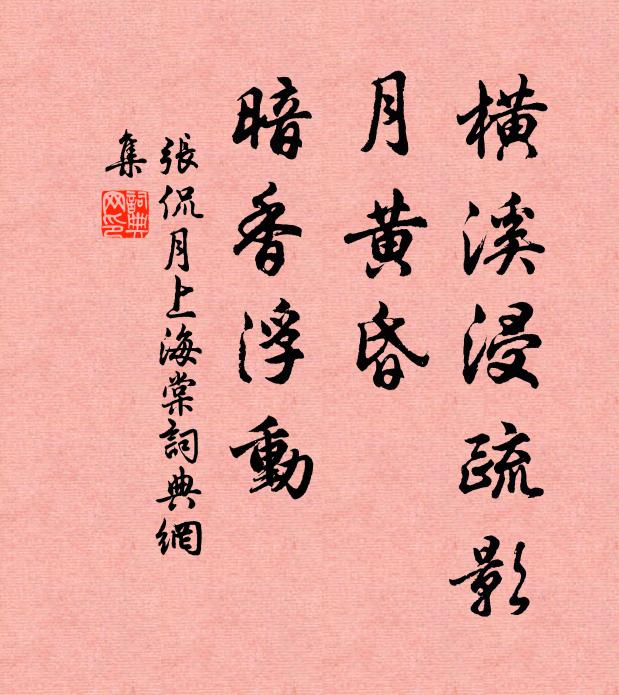 橫溪浸疏影
月黃昏
暗香浮動
張侃月上海棠詞典網
集
詞典
网印